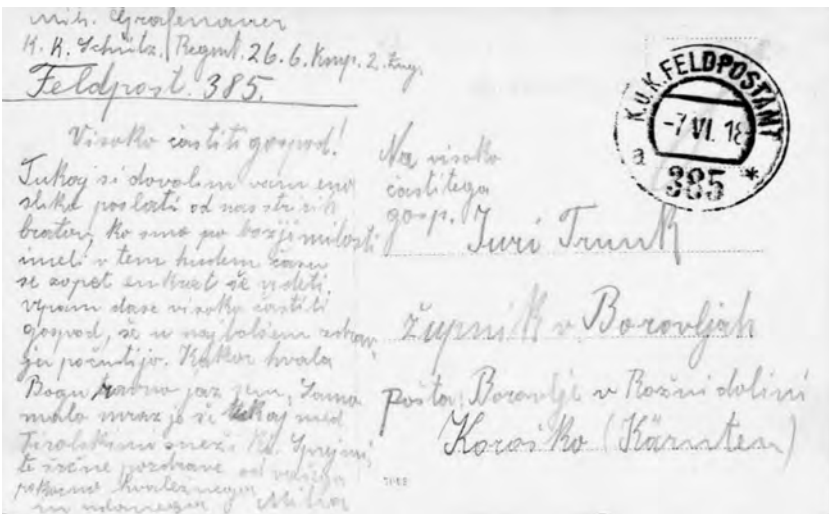 Mih. Grafenauer
K. K. Schütz. Regmt. 26. 6. Kmp. 2. Zug.
Feldpost. 385.
Visoko častiti gospod!
Tukaj si dovolim vam eno
sliko poslati od nas štirih
bratov, ko smo po božji milosti
imeli v tem hudem času
se zopet enkrat še videti.
Upam da se visoko častiti
gospod, še v najbolšem zdrav-
ju počutijo. Kakor hvala
Bogu ravno jaz sem, Samo
malo mraz je še tukaj med
Tirolskimi Sprejmi,
te srčne pozdrave od vašega
hvaležnega
in udanega Miha
Na visoko
častitega
gosp. Juri Trunk
župnik v Borovljah
pošta: Borovlje v Rožni dolini
Koroško (Kärnten)
K.u.K. FELDPOSTAMT
-7.VI.18
a 385 *